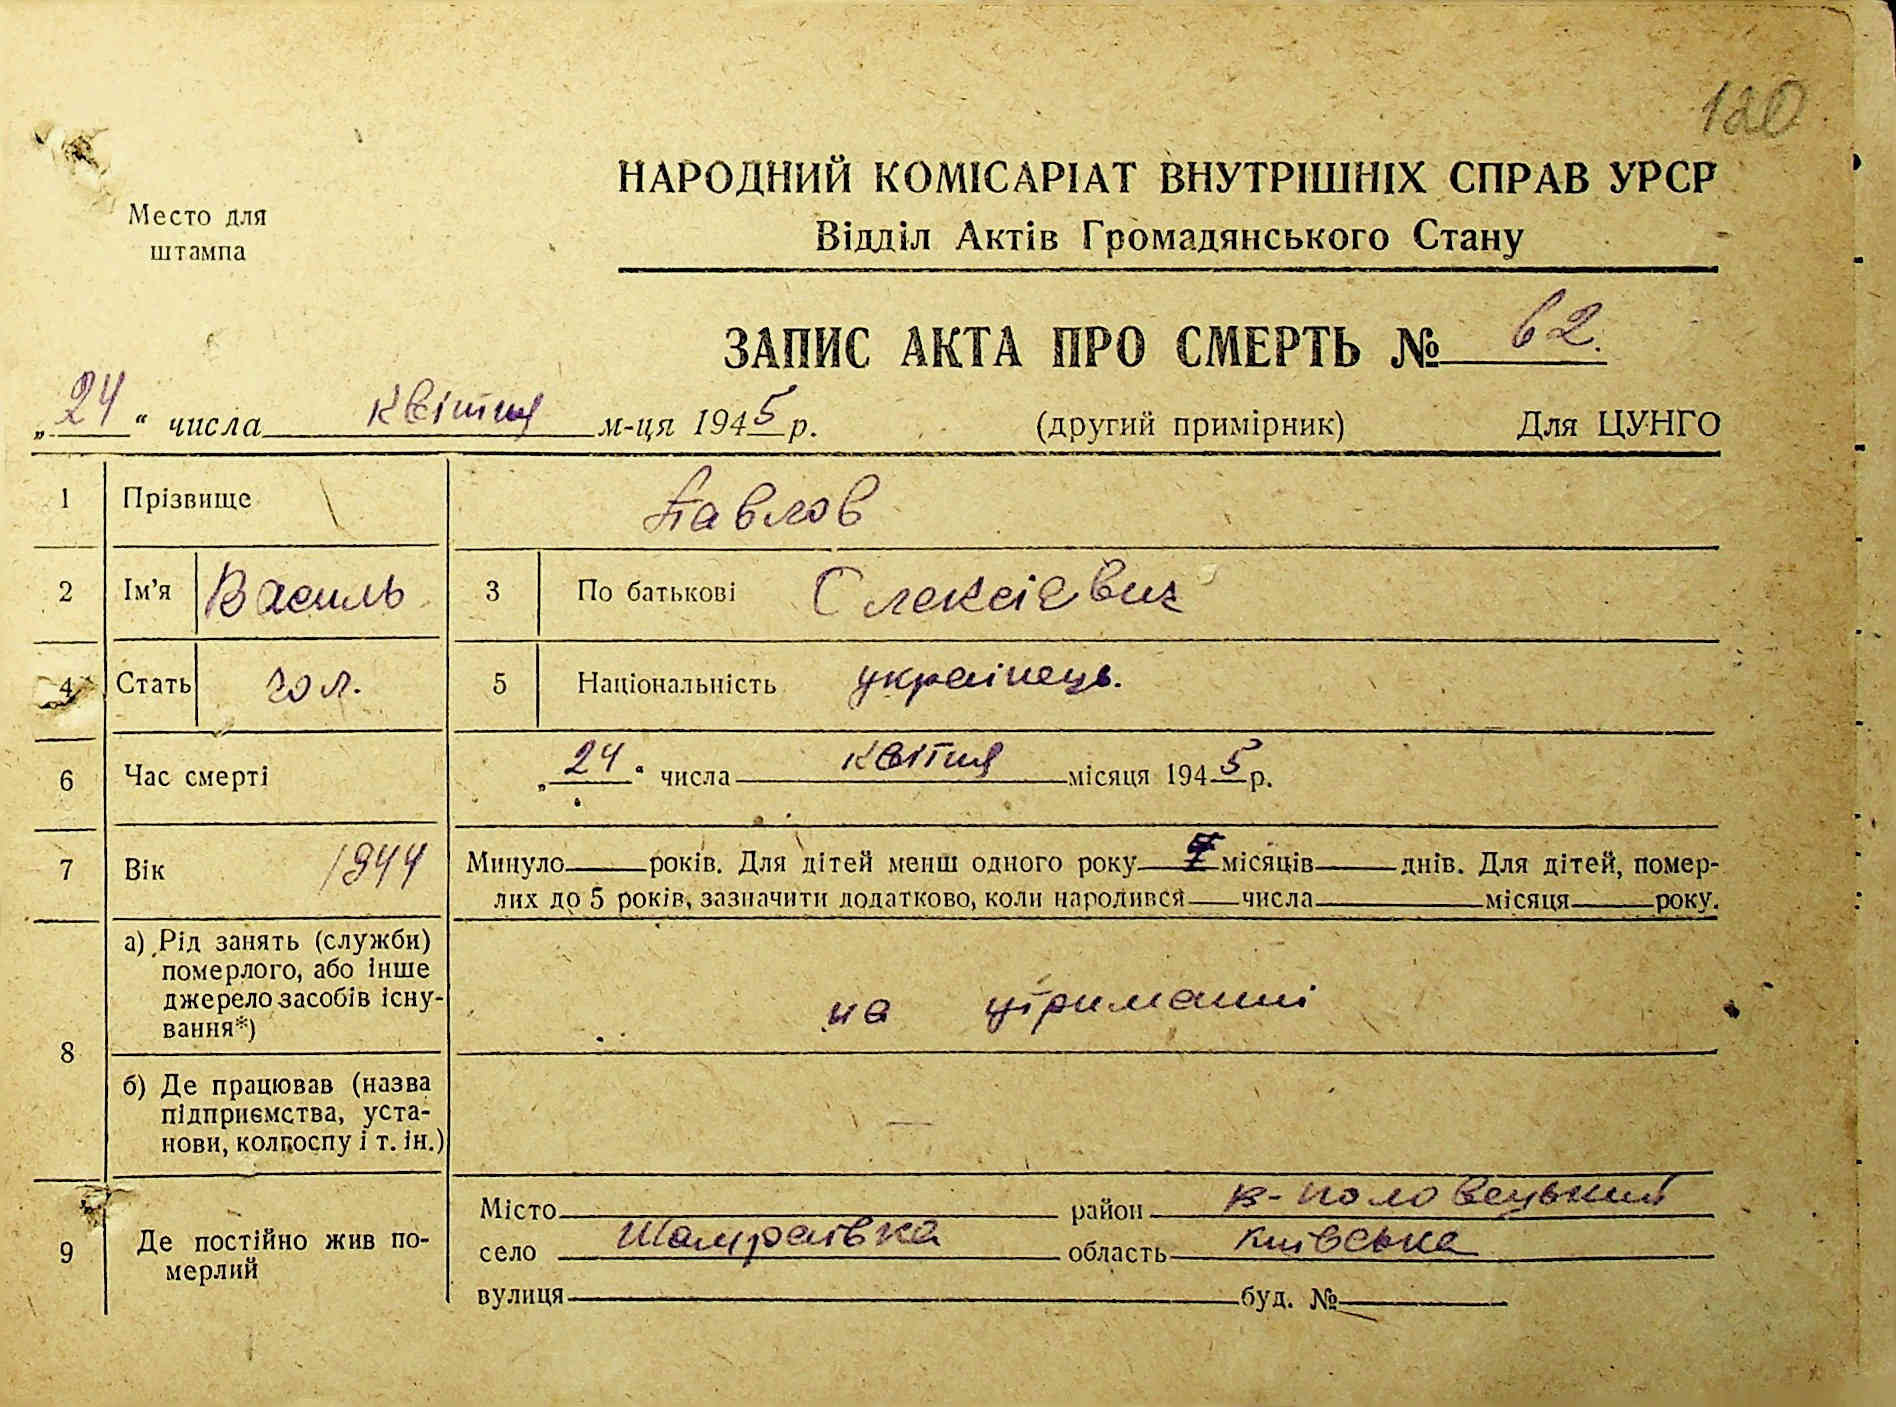 120
НАРОДНИЙ КОМІСАРІАТ ВНУТРІШНІХ СПРАВ УРСР
Відділ Актів Громадянського Стану
Место для
штампа
ЗАПИС АКТА ПРО СМЕРТЬ № 62.
„24“ числа квітня м-ця 1945 р. (другий примірник) Для ЦУНГО
1 Прізвище Павлов
2 Ім'я Василь 3 По батькові Олексієвич
4 Стать чол. 5 Національність українець.
6 Час смерті „24“ числа квітня місяця 1945 р.
7 Вік 1944 Минуло років. Для дітей менш одного року 7 місяців днів. Для дітей, помер-
лих до 5 років, зазначити додатково, коли народився числа місяця року.
8 а) Рід занять (служби)
померлого, або інше
джерело засобів існу-
вання*)
на утриманні
б) Де працював (назва
підприємства, уста-
нови, колгоспу і т. ін.)
—
9 Де постійно жив по-
мерлий
Місто район В-половецький
село Шамраївка область Київська
вулиця буд. №